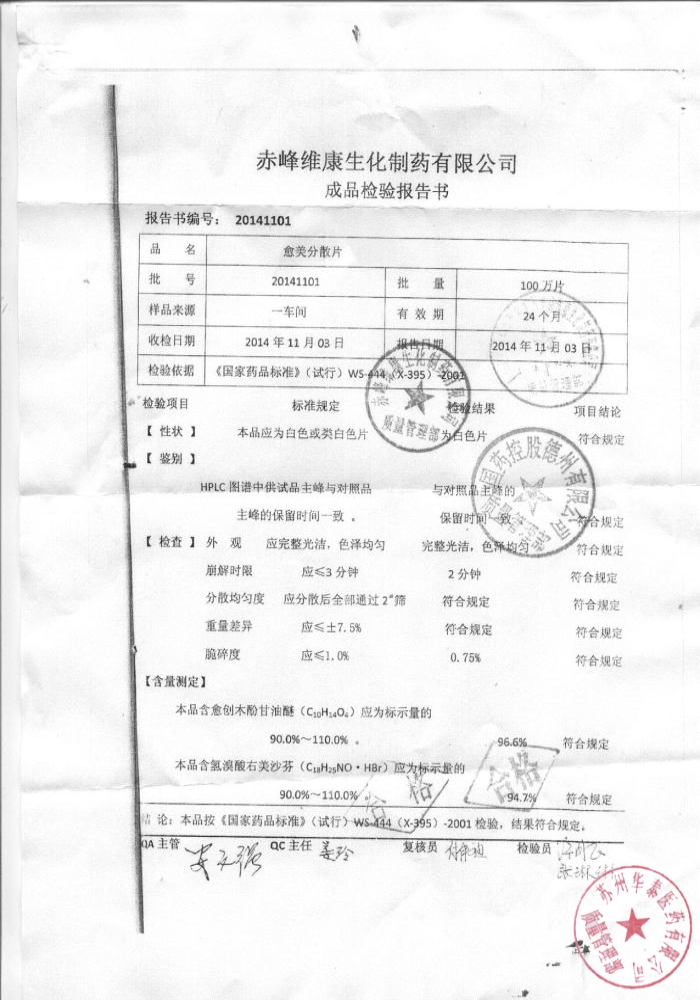 赤峰维康生化制药有限公司
成品检验报告书
报告书编号： 20141101
品 名 愈美分散片
批 号 20141101 批 量 100 万片
样品来源 一车间 有 效 期 24 个月
收检日期 2014 年 11 月 03 日 报告日期 2014 年 11 月 03 日
检验依据 《国家药品标准》（试行）WS-444（X-395）-2001
检验项目 标准规定 检验结果 项目结论
【 性状 】 本品应为白色或类白色片 为白色片 符合规定
【 鉴别 】
HPLC 图谱中供试品主峰与对照品 与对照品主峰的
主峰的保留时间一致 。 保留时间一致 符合规定
【 检查 】 外 观 应完整光洁，色泽均匀 完整光洁，色泽均匀 符合规定
崩解时限 应≤3 分钟 2 分钟 符合规定
分散均匀度 应分散后全部通过 2#筛 符合规定 符合规定
重量差异 应≤±7.5% 符合规定 符合规定
脆碎度 应≤1.0% 0.75% 符合规定
【含量测定】
本品含愈创木酚甘油醚（C10H14O4）应为标示量的
90.0%～110.0% 。 96.6% 符合规定
本品含氢溴酸右美沙芬（C18H25NO·HBr）应为标示量的
90.0%～110.0% 94.7% 符合规定
合格
合格
结 论：本品按《国家药品标准》（试行）WS-444（X-395）-2001 检验，结果符合规定。
QA 主管 QC 主任 姜玲 复核员 检验员
赤峰维康生化制药有限公司
质量管理部
国药控股德州有限公司
苏州华泰医药有限公司
质量管理部